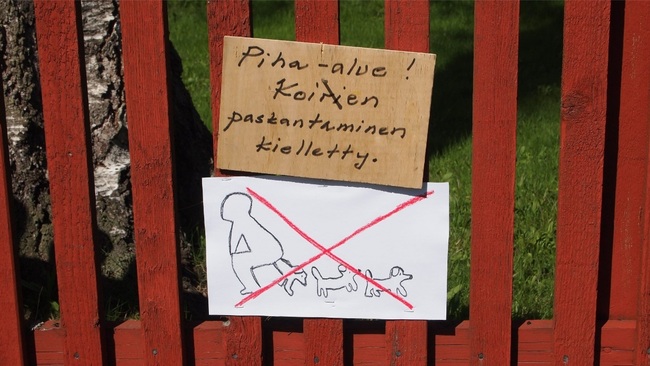 Piha-alue!
Koirien
paskantaminen
kielletty.